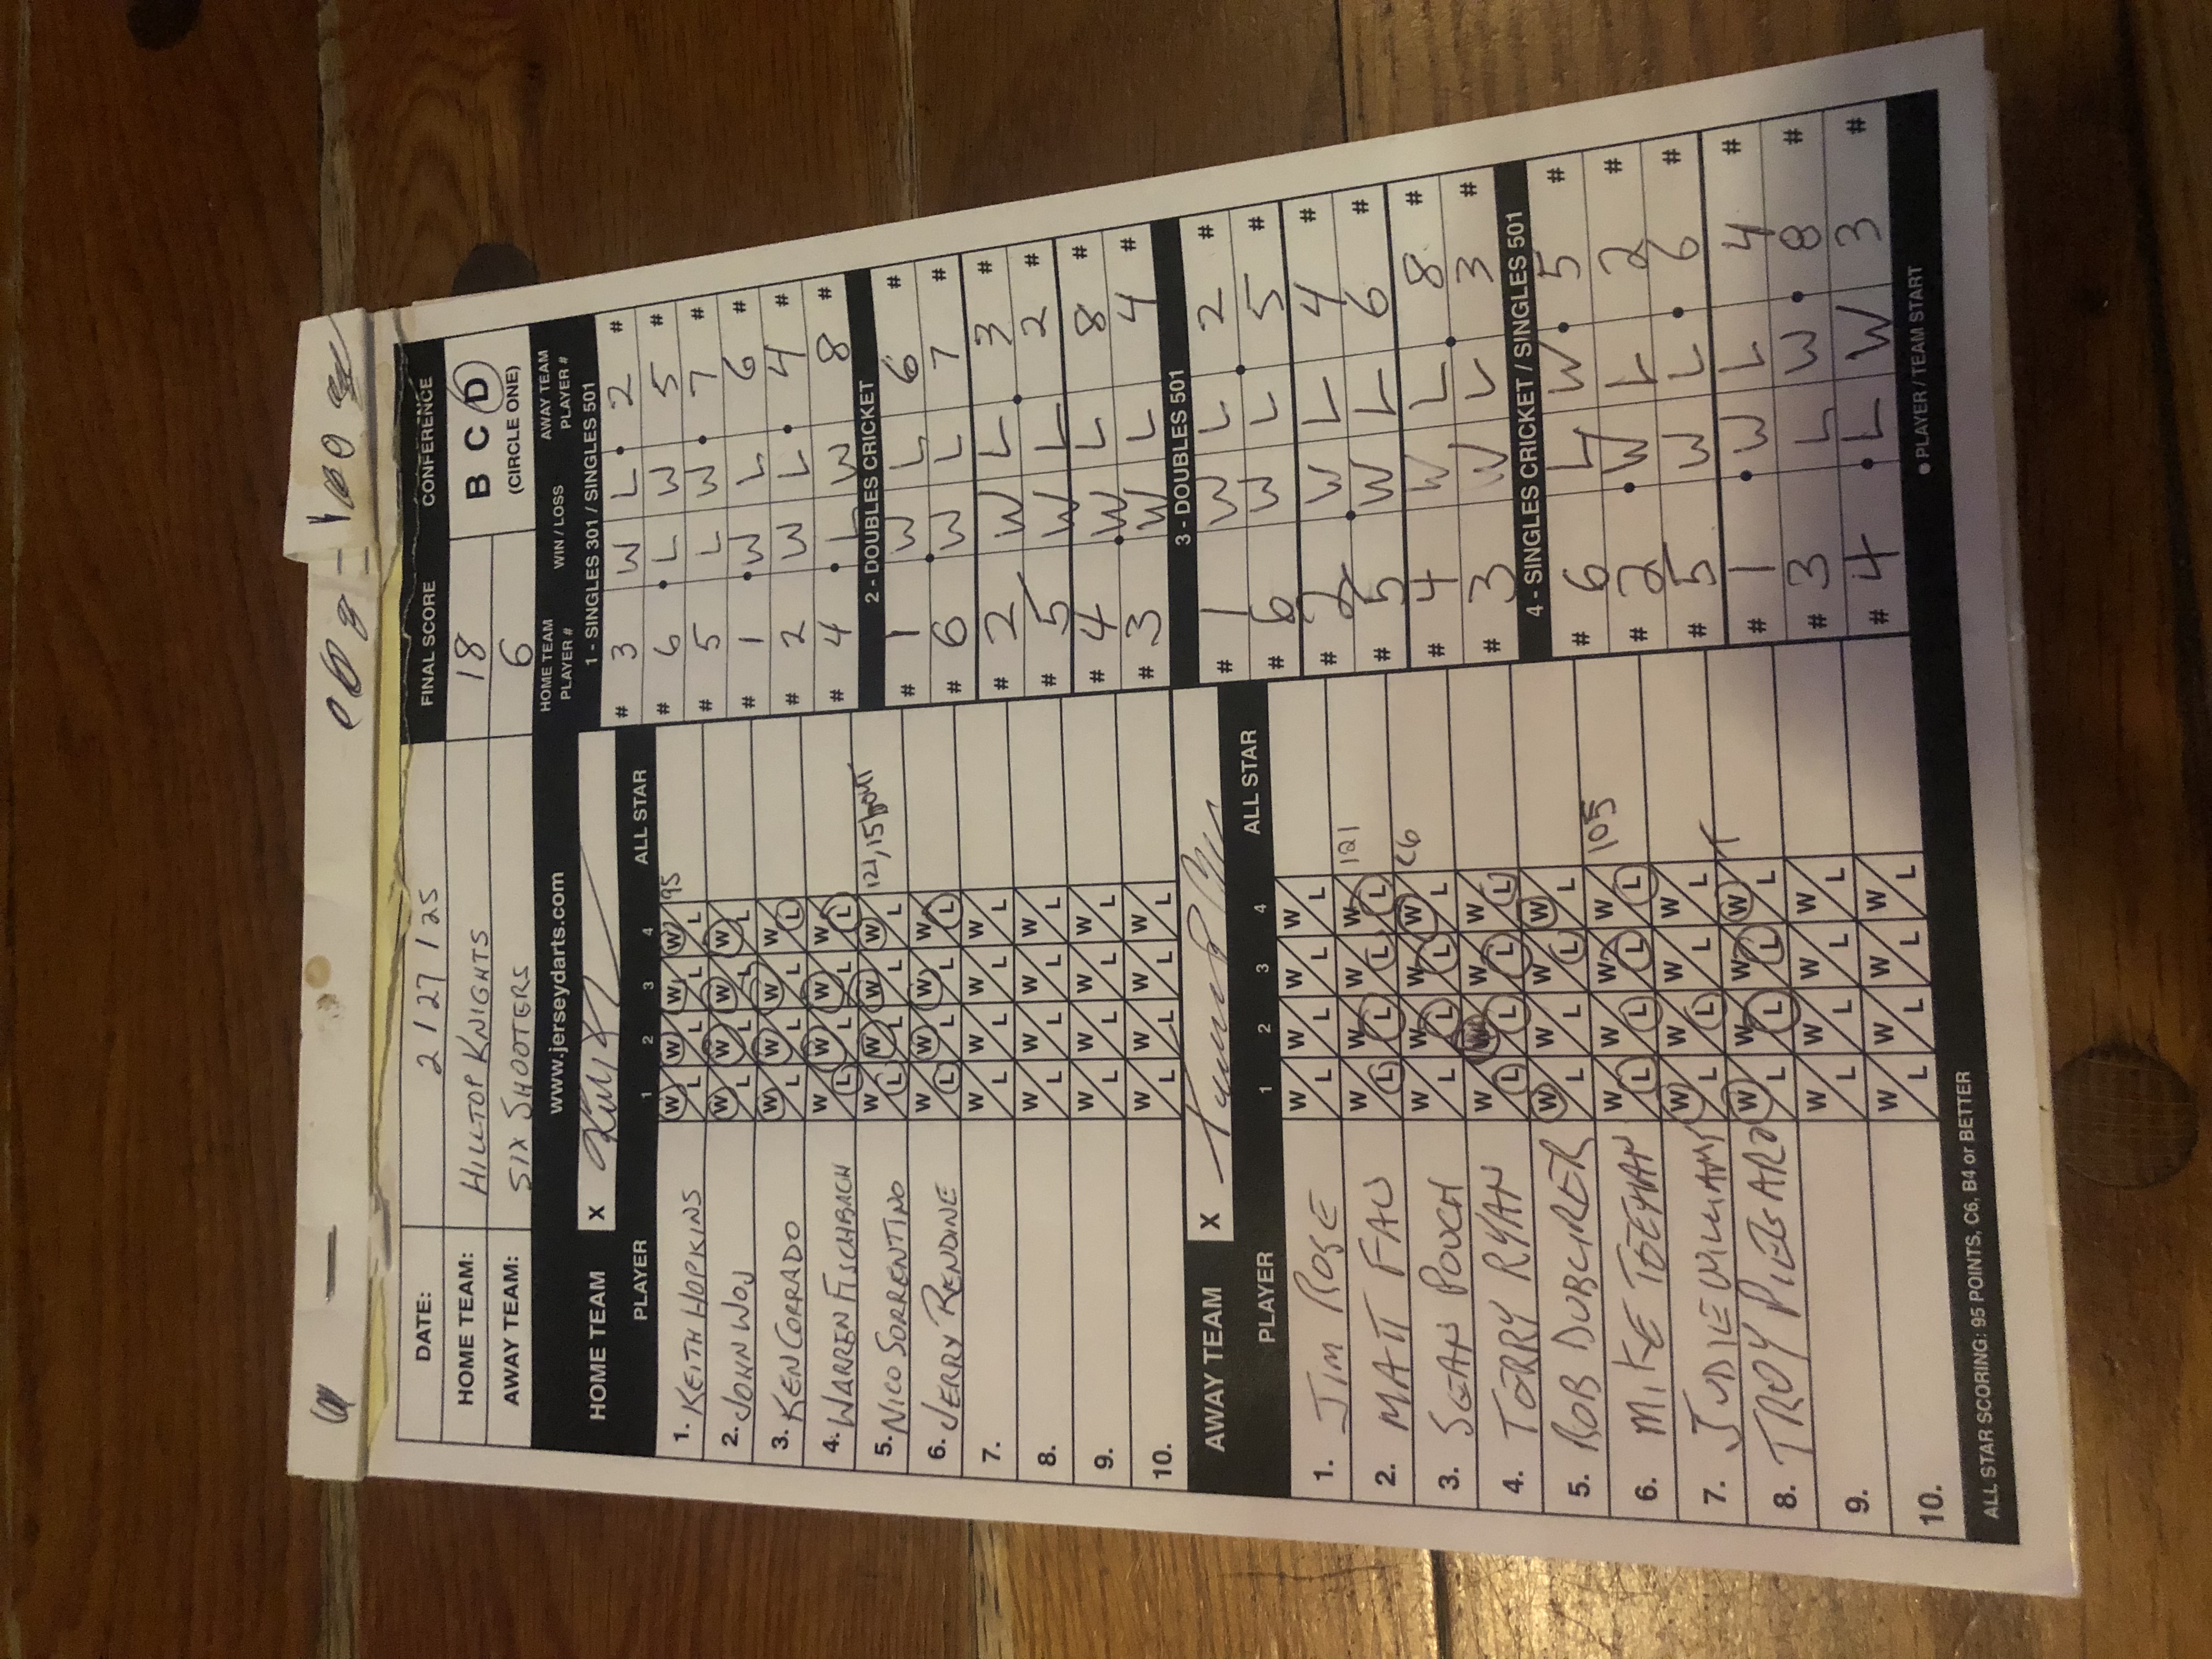 DATE: 2 / 27 / 25 FINAL SCORE CONFERENCE
HOME TEAM: HILLTOP KNIGHTS 18 B C D
AWAY TEAM: SIX SHOOTERS 6 (CIRCLE ONE)
www.jerseydarts.com
HOME TEAM PLAYER # WIN / LOSS AWAY TEAM PLAYER #
HOME TEAM X
PLAYER 1 2 3 4 ALL STAR
1. KEITH HOPKINS W L W L W L W L 95
2. JOHN WOJ W L W L W L W L
3. KEN CORRADO W L W L W L W L
4. WARREN FISCHBACH W L W L W L W L
5. NICO SORRENTINO W L W L W L W L 121, 151
6. JERRY RENDINE W L W L W L W L
7. W L W L W L W L
8. W L W L W L W L
9. W L W L W L W L
10. W L W L W L W L
AWAY TEAM X
PLAYER 1 2 3 4 ALL STAR
1. JIM ROSE W L W L W L W L
2. MATT FAU W L W L W L W L 121
3. SEAN POUCH W L W L W L W L C6
4. TERRY RYAN W L W L W L W L
5. ROB DUBLIRER W L W L W L W L
6. MIKE W L W L W L W L 105
7. JUDIE WILLIAMS W L W L W L W L
8. TROY W L W L W L W L
9. W L W L W L W L
10. W L W L W L W L
1 - SINGLES 301 / SINGLES 501
# 3 W L 2 #
# 6 L W 5 #
# 5 L W 7 #
# 1 W L 6 #
# 2 W L 4 #
# 4 L W 8 #
2 - DOUBLES CRICKET
# 1 W L 6 #
# 6 W L 7 #
# 2 W L 3 #
# 5 W L 2 #
# 4 W L 8 #
# 3 W L 4 #
3 - DOUBLES 501
# 1 W L 2 #
# 6 W L 5 #
# 2 W L 4 #
# 5 W L 6 #
# 4 W L 8 #
# 3 W L 3 #
4 - SINGLES CRICKET / SINGLES 501
# 6 L W 5 #
# 2 W L 2 #
# 5 W L 6 #
# 1 W L 4 #
# 3 L W 8 #
# 4 L W 3 #
● PLAYER / TEAM START
ALL STAR SCORING: 95 POINTS, C6, B4 or BETTER